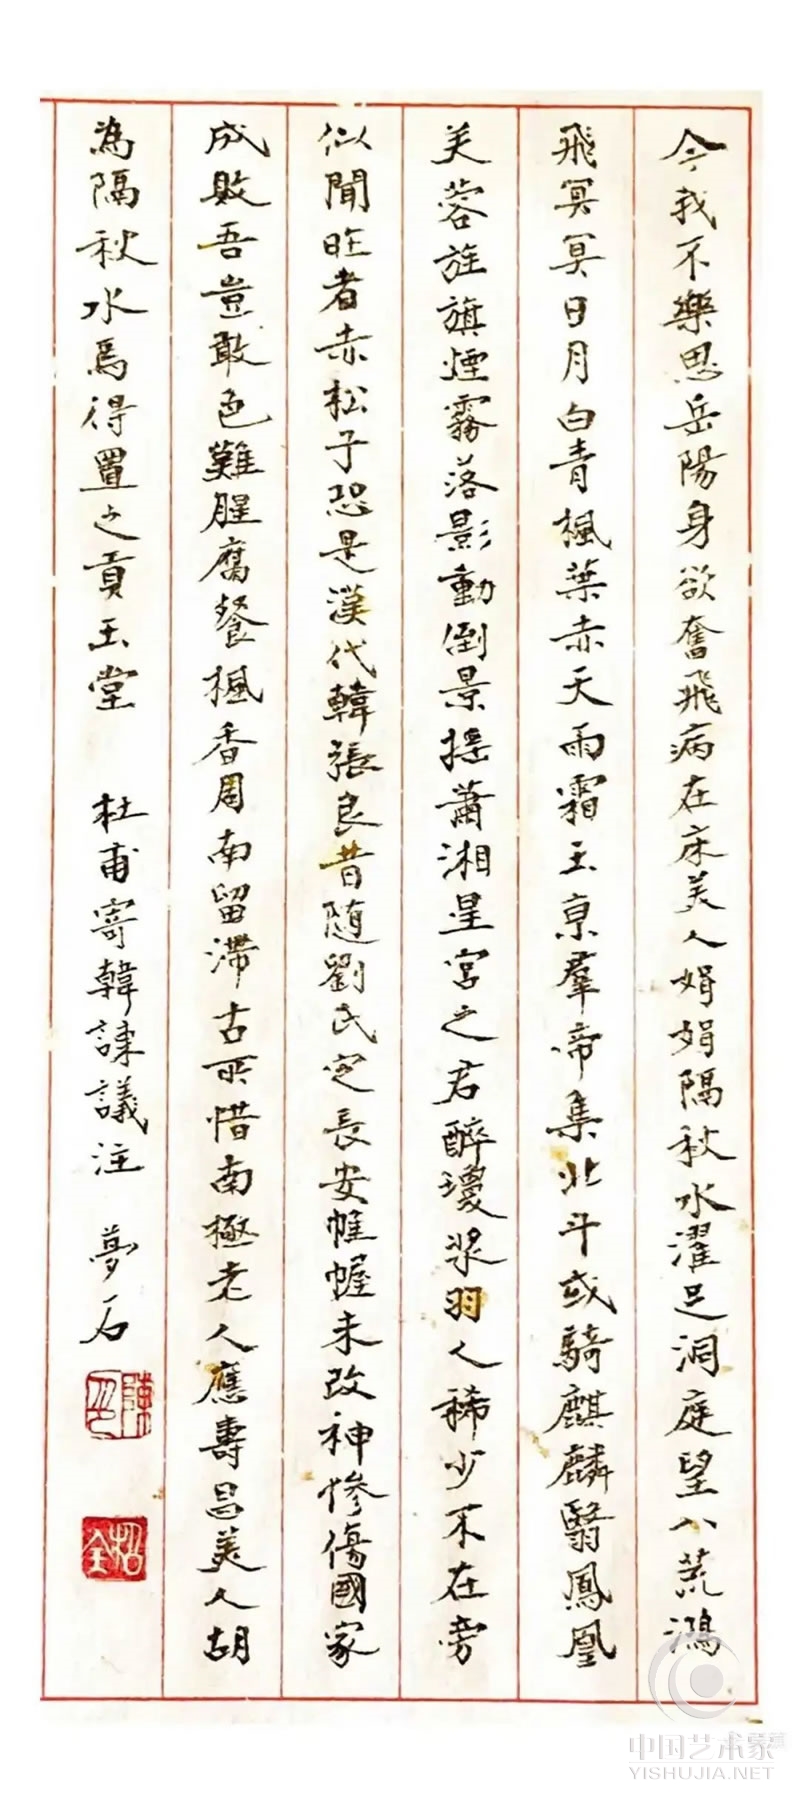 今我不樂思岳陽身欲奮飛病在床美人娟娟隔秋水濯足洞庭望八荒鴻
飛冥冥日月白青楓葉赤天雨霜玉亰羣帝集北斗或騎麒麟翳鳳凰
芙蓉旌旗煙霧落影動倒景搖蕭湘星宮之君醉瓊漿羽人稀少不在旁
似聞昨者赤松子恐是漢代韓張良昔随劉氏定長安帷幄未改神慘傷國家
成敗吾豈敢色難腥腐餐楓香周南留滯古所惜南極老人應壽昌美人胡
為隔秋水焉得置之貢玉堂 杜甫寄韓諫議注 夢石
中国艺术家
YISHUJIA.NET